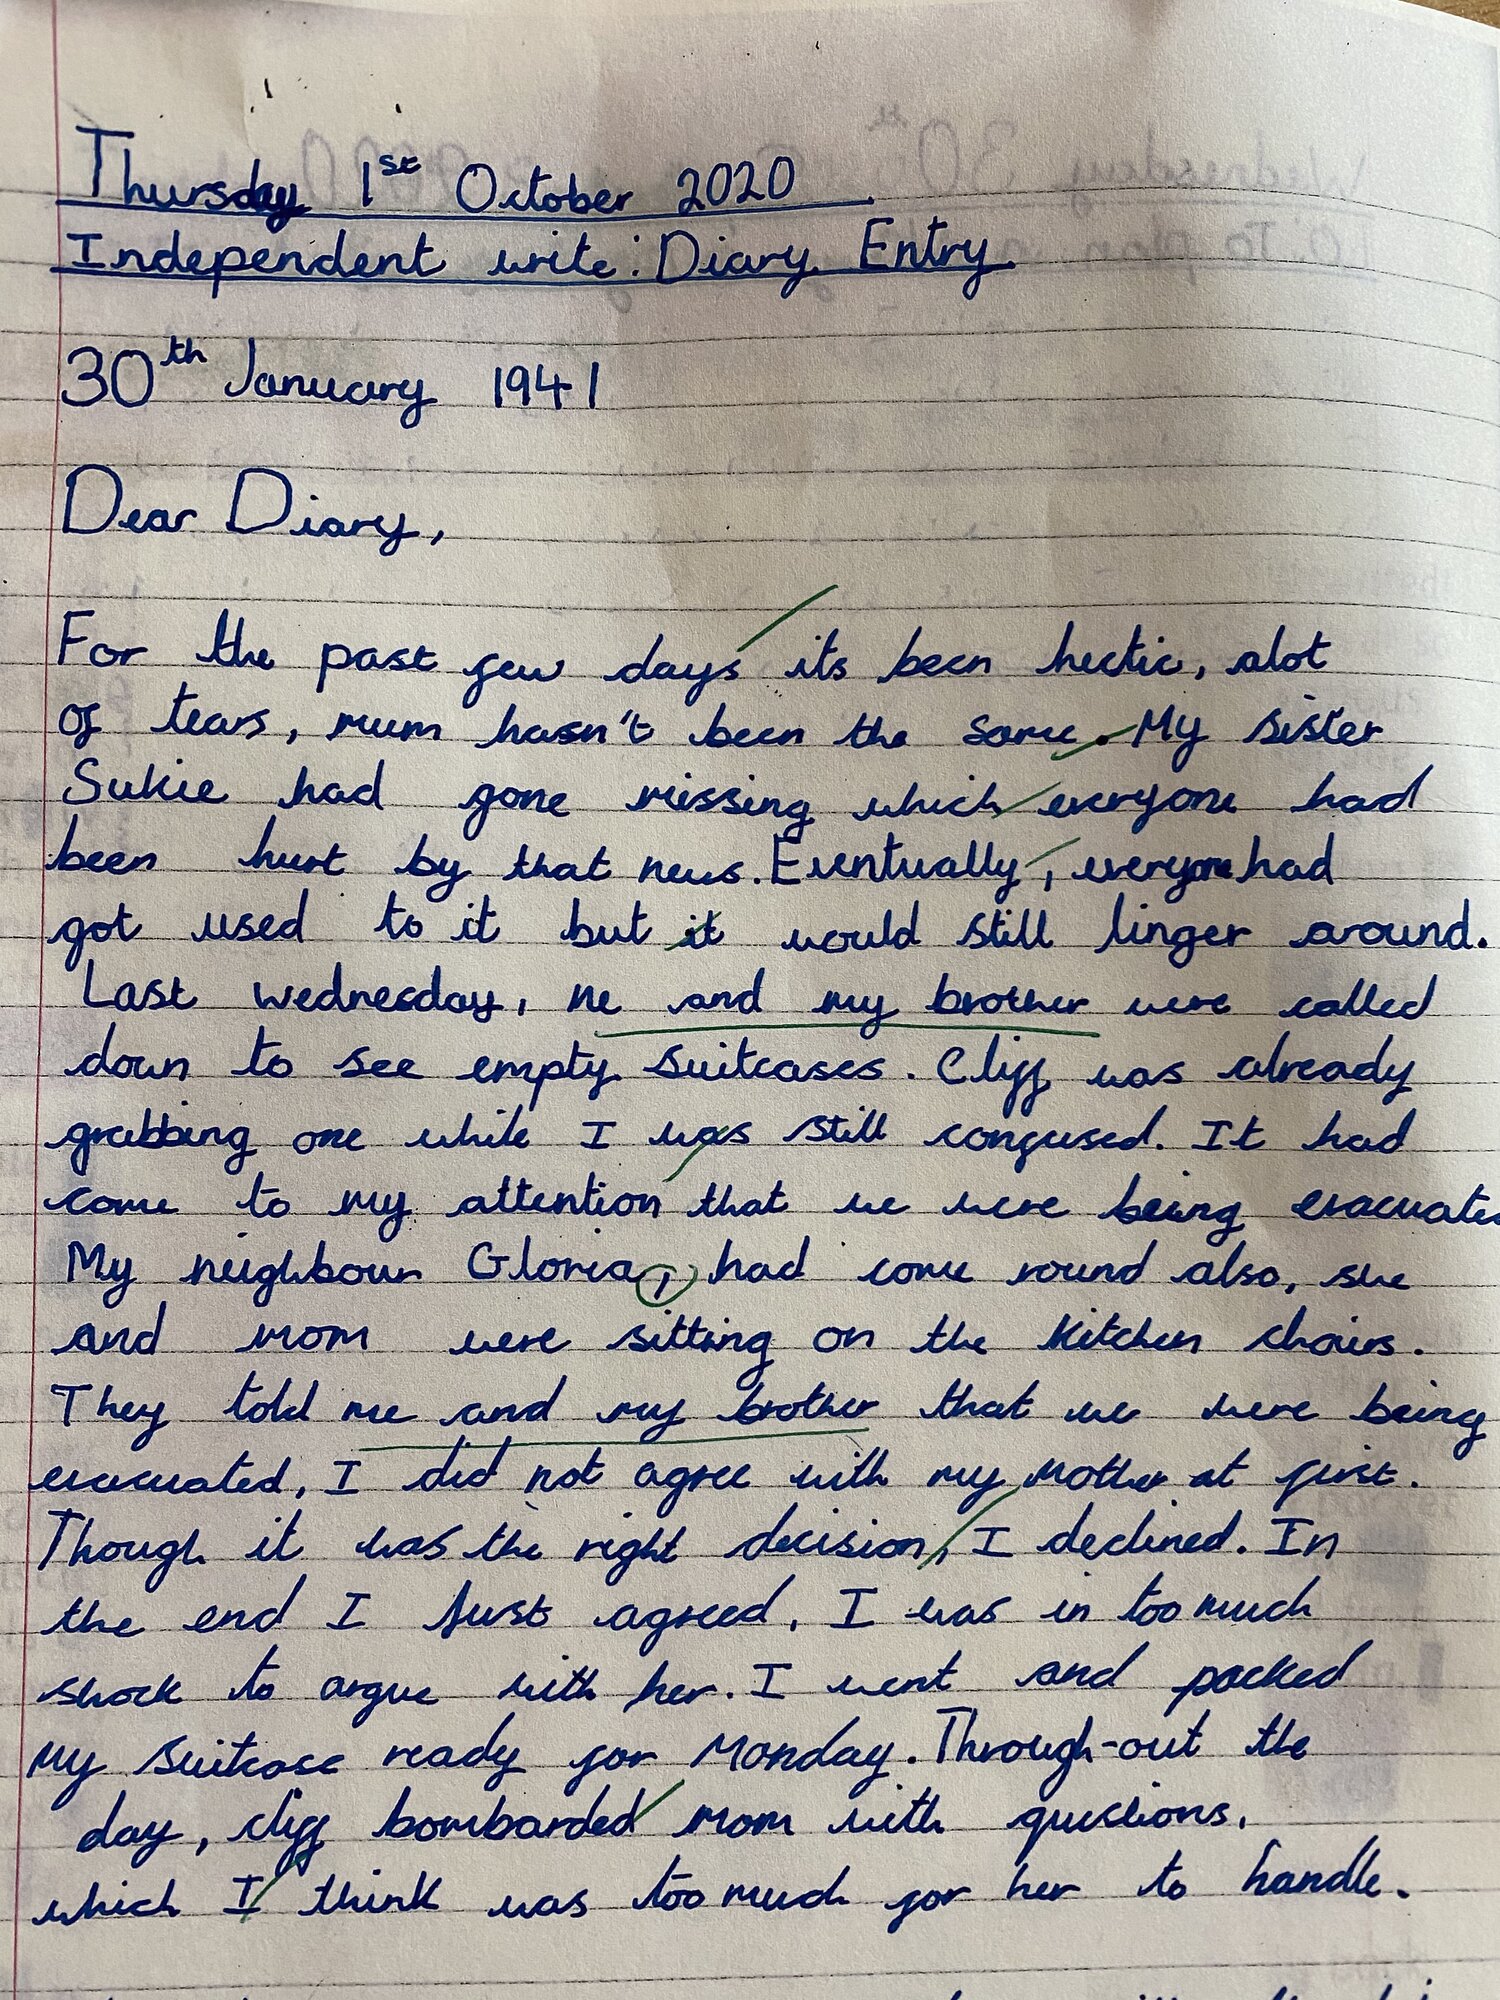 Thursday 1st October 2020
Independent write: Diary Entry
30th January 1941
Dear Diary,
For the past few days its been hectic, alot
of tears, mum hasn't been the same. My sister
Sukie had gone missing which everyone had
been hurt by that news. Eventually, everyone had
got used to it but it would still linger around.
Last wednesday, me and my brother were called
down to see empty suitcases. Cliff was already
grabbing one while I was still confused. It had
come to my attention that we were being evacuated
My neighbour Gloria, had come round also, she
and mom were sitting on the kitchen chairs.
They told me and my brother that we were being
evacuated, I did not agree with my mother at first.
Though it was the right decision, I declined. In
the end I Just agreed, I was in too much
shock to argue with her. I went and packed
my suitcase ready for Monday. Through-out the
day, cliff bombarded mom with questions,
which I think was too much for her to handle.